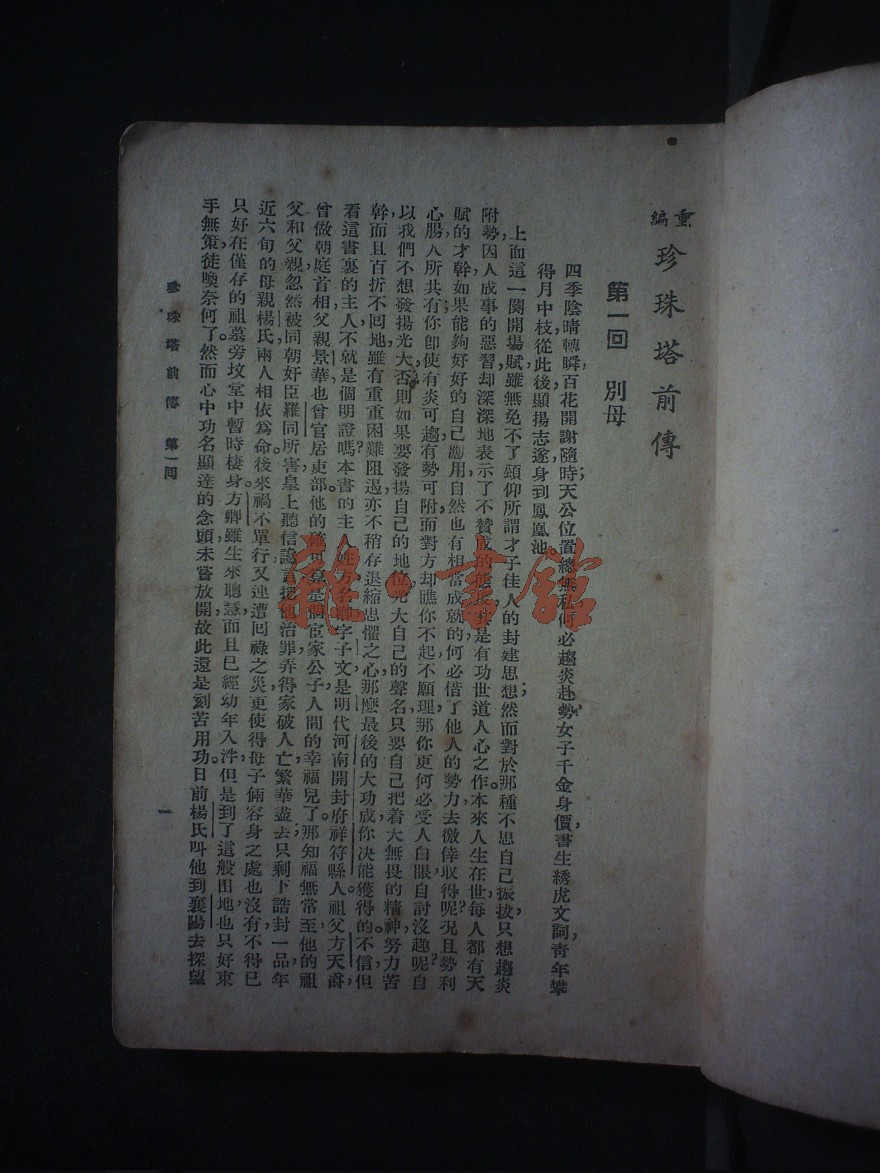 重編 珍珠塔前傳
第一回 別母
四季陰晴轉瞬，百花開謝隨時；天公位置總無私，何必趨炎赴勢。女子千金身價，書生綉虎文詞，靑年攀
得月中枝，從此後顯揚志遂，身到鳳凰池。
上面這一闋開場賦，雖無免不了頸仰所謂才子佳人的封建思想；然而對於那種不思自己振拔，只想趨炎
附勢，因人成事的惡習，却深深地表示了不贊成的 是有功世道人心之作。本來人生在世，每人都有天
賦的才幹，如果能夠好好的自己應用，自然也有相當成就的，何必借了他人的勢力去徼倖取得呢？況且勢利
心腸，人所共有，你卽使有炎可趨，有勢可附，而對方却瞧你不起，不願理那，你更何必受人白眼，自討沒趣呢？自
以我們不想發揚光大，否則如果要發揚自己的地位，光大自己的聲名，只要自己把着大無畏的精神，努力苦
幹，而且百折不囘地，雖有重重困難阻遏，亦不稍存退縮思懼之心，那麽最後的大功成，你决能獲得的。不信，但
看這書裏的主人，不就是個明證嗎？本書的主人，姓方名卿，字子文，是明代河南開封府祥符縣人。祖父方天爵，
曾做朝庭首相，父親景華也曾官居吏部，他的 是個宦家公子，人間的幸福兒了。那知福無常至，他的祖
父和父親，忽然被同朝奸臣羅同所害，皇上聽信讒言，把他治罪，弄得家破人亡，繁華盡去；只剩下誥封一品年
近六旬的母親楊氏，兩人相依爲命。後來禍不單行，又連遭囘祿之災，更使得母子倆容身之處也沒有，不得已
只好在僅存的祖墓旁坟堂中暫時棲身。方卿雖生來聰慧，而且已經幼年入泮，但是到了這般田地，也只好束
手無策，徒喚奈何了。然而心中功名顯達的念頭，未嘗放開，故此還是刻苦用功。日前楊氏叫他到襄陽去探望
珍珠塔前傳 第一囘
一
雜·書館